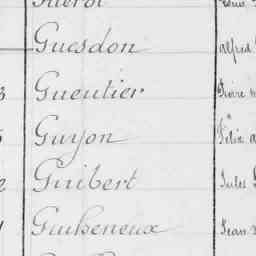 Guesdon alfred
Gueutier
Guyon Félix a
Guibert Jules
Guiheneux Jean